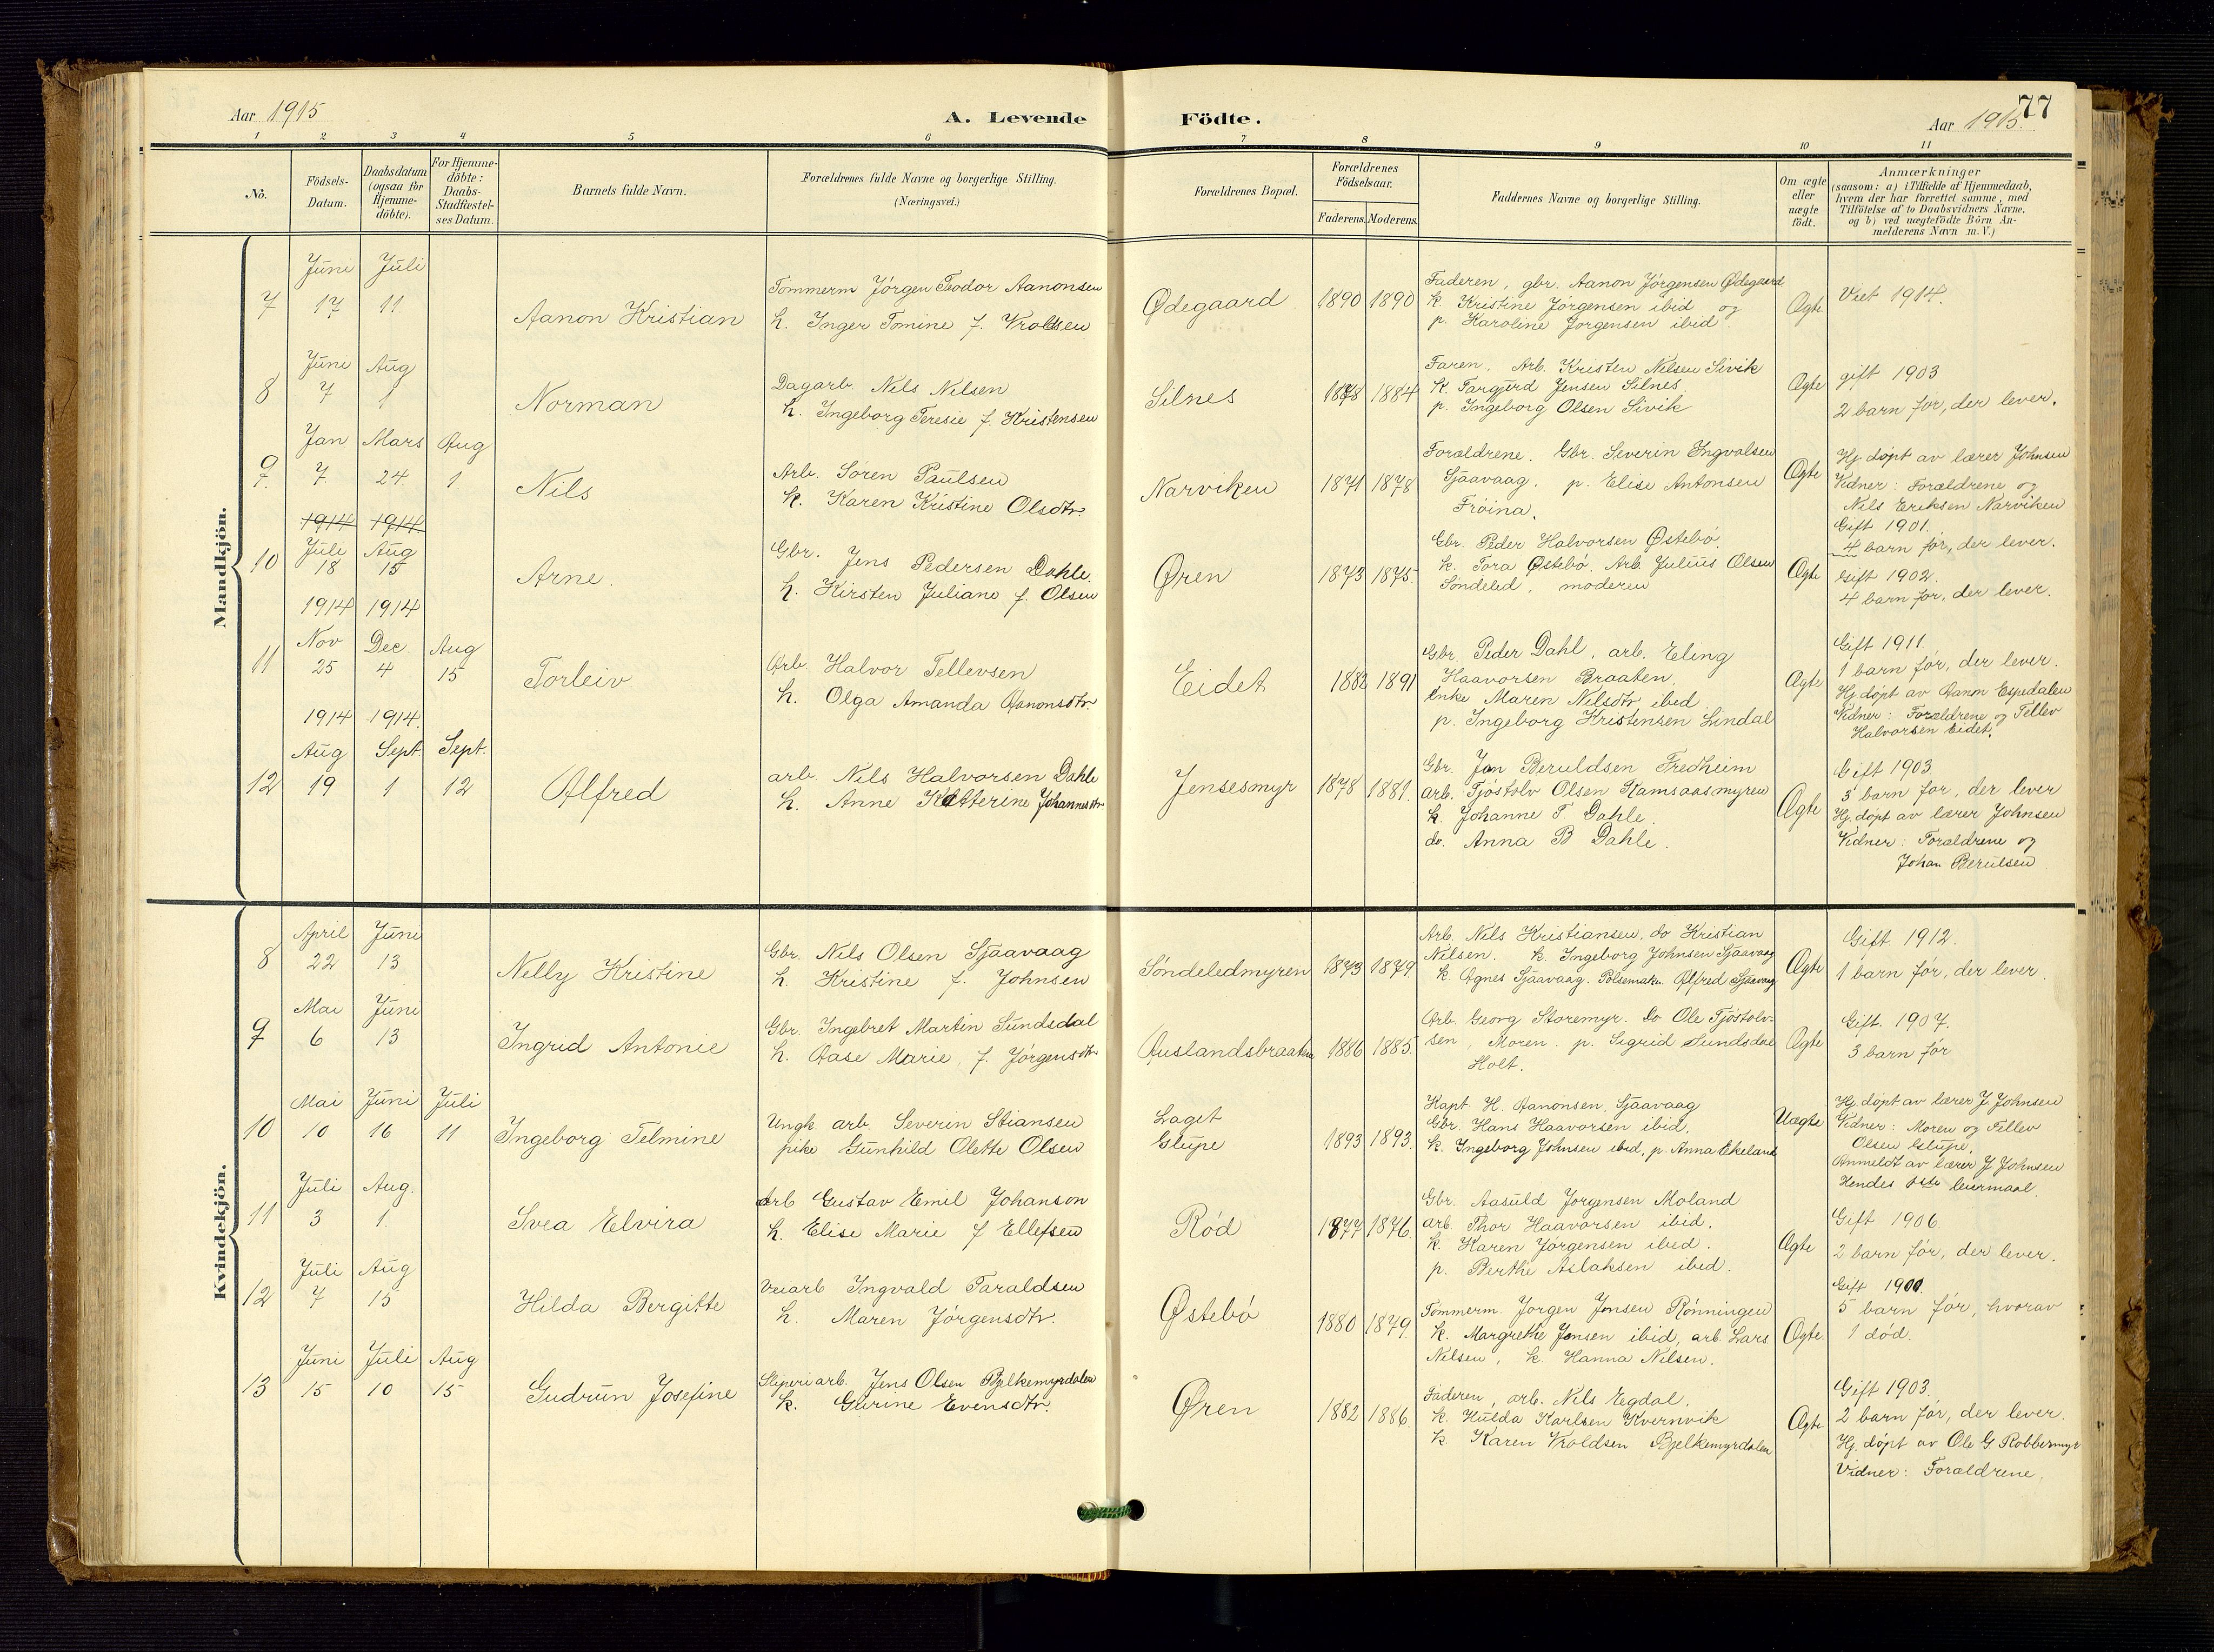 Aar 1915
A. Levende
Fødte.
Aar 1915.
77
1 2 3 4 5 6 7 8 9 10 11
No.
Födsels-
Datum.
Daabsdatum
(ogsaa for
Hjemme-
döbte).
For Hjemme-
döbte:
Daabs-
Stadfæstel-
ses Datum.
Barnets fulde Navn.
Forældrenes fulde Navne og borgerlige Stilling.
(Næringsvei.)
Forældrenes Bopæl.
Forældrenes
Födselsaar.
Faderens. Moderens.
Faddernes Navne og borgerlige Stilling.
Om ægte
eller
uægte
födt.
Anmærkninger
(saasom: a) i Tilfælde af Hjemmedaab,
hvem der har forrettet samme, med
Tilföielse af to Daabsvidners Navne.
og b) ved uægtefödte Börn An-
melderens Navn m. V.)
Mandkjön.
7
Juni Juli
17 11
Aanon Kristian
Tømmerm Jørgen Teodor Aanonsen
h. Inger Tomine f. Vroldsen
Ødegaard
1890 1890
Faderen, gbr. Aanon Jørgensen Ødegaard
k. Kristine Jørgensen ibid og
p. Karoline Jørgensen ibid.
Ægte
Viet 1914.
8
Juni Aug
7 1
Norman
Dagarb. Nils Nilsen
h. Ingeborg Teresie f. Kristensen
Silnes
1878 1884
Faren. Arb. Kristen Nilsen Sivik
k. Targjerd Jensen Silnes.
p. Ingeborg Olsen Sivik
Ægte
gift 1903
2 barn før, der lever.
9
Jan Mars Aug
7. 24. 1.
Nils
Arb. Søren Paulsen
k. Karen Kristine Olsdtr.
Narviken
1871 1878
Forældrene. Gbr. Severin Ingvalsen
Sjaavaag. p. Elise Antonsen
Frøina.
Ægte
Hj. døpt av lærer Johnsen
Vidner: Forældrene og
Nils Eriksen Narviken
Gift 1901.
4 barn før, der lever.
10
1914 1914
Juli Aug
18 15
Arne.
Gbr. Jens Pedersen Dahle.
h. Kirsten Juliane f. Olsen
Øren
1873 1875.
Gbr. Peder Halvorsen Østebø.
k. Tora Østebø. Arb. Julius Olsen
Søndeled, moderen
Ægte
Gift 1902.
4 barn før, der lever.
11
1914 1914
Nov Dec. Aug
25 4 15
Torleiv
Arb. Halvor Tellevsen
h. Olga Amanda Aanonsdtr.
Eidet
1882 1891
Gbr. Peder Dahl, arb. Eling
Haavorsen Braaten.
Enke Maren Nilsdtr ibid
p. Ingeborg Kristensen Lindal
Ægte
Gift 1911.
1 barn før, der lever.
Hj. døpt av Aanon Espedalen
Vidner: Forældrene og Tellev
Halvorsen Eidet.
12
1914 1914.
Aug Sept. Sept.
19 1 12
Alfred
arb. Nils Halvorsen Dahle
h. Anne Katterine Johannesdtr
Jensesmyr
1878 1881.
Gbr. Jan Beruldsen Fredheim
arb. Tjøstolv Olsen Kamsaasmyren
k. Johanne T Dahle.
do. Anna B Dahle.
Ægte
Gift 1903
3 barn før, der lever
Hj. døpt av lærer Johnsen
Vidner: Forældrene og
Johan Berulsen
Kvindekjön.
8
April Juni
22 13
Nelly Kristine
Gbr. Nils Olsen Sjaavaag
h. Kristine f. Johnsen
Søndeledmyren
1873 1879.
Arb. Nils Kristiansen, do Kristian
Nilsen. k. Ingeborg Johnsen Sjaavaag
k. Agnes Sjaavaag. Pølsemaker Alfred Sjaavaag
Ægte
Gift 1912.
1 barn før, der lever.
9
Mai Juni
6 13
Ingrid Antonie
Gbr. Ingebret Martin Sundsdal
h. Aase Marie f. Jørgensdtr
Auslandsbraaten
1886 1885.
Arb. Georg Storemyr. Do Ole Tjøstolv-
sen, Moren. p. Sigrid Sundsdal
Holt.
Ægte
Gift. 1907.
3 barn før
10
Mai Juni Juli
10 16 11
Ingeborg Telmine
Ungk. arb. Severin Stiansen
pike Gunhild Olette Olsen
Laget
Glupe
1893 1893.
Kapt. H. Aanonsen. Sjaavaag
Gbr. Hans Haavorsen ibid.
k. Ingeborg Johnsen ibid, p. Anna Ekeland
Uægte
Hj. døpt av lærer J. Johnsen
Vidner: Moren og Tellev
Olsen Glupe.
Anmeldt av lærer J Johnsen
Hendes leiermaal.
11
Juli Aug.
3 1.
Svea Elvira
Arb Gustav Emil Johanson
h. Elise Marie f Ellefsen
Rød
1877 1876.
Gbr. Aasuld Jørgensen Moland
arb. Thor Haavorsen ibid.
k. Karen Jørgensen ibid.
p. Berthe Aslaksen ibid.
Ægte
Gift 1906.
2 barn før, der lever.
12
Juli Aug
7 15
Hilda Bergitte
Veiarb Ingvald Taraldsen
h. Maren Jørgensdtr.
Østebø
1880 1879.
Tømmerm. Jørgen Jensen Rønningen
k. Margrethe Jensen ibid, arb Lars
Nilsen, k. Hanna Nilsen.
Ægte.
Gift 1900.
5 barn før, hvorav
1 død.
13
Juni Juli Aug
15 10 15
Gudrun Josefine
Sliperiarb. Jens Olsen Bjelkemyrdalen
k. Gurine Evensdtr.
Øren
1882 1886.
Faderen, arb. Nils Egdal.
k. Hulda Karlsen Kvernvik
k. Karen Vroldsen Bjelkemyrdalen
Ægte
Gift 1903.
2 barn før, der lever.
Hj. døpt av Ole G. Robbermyr
Vidner: Forældrene.